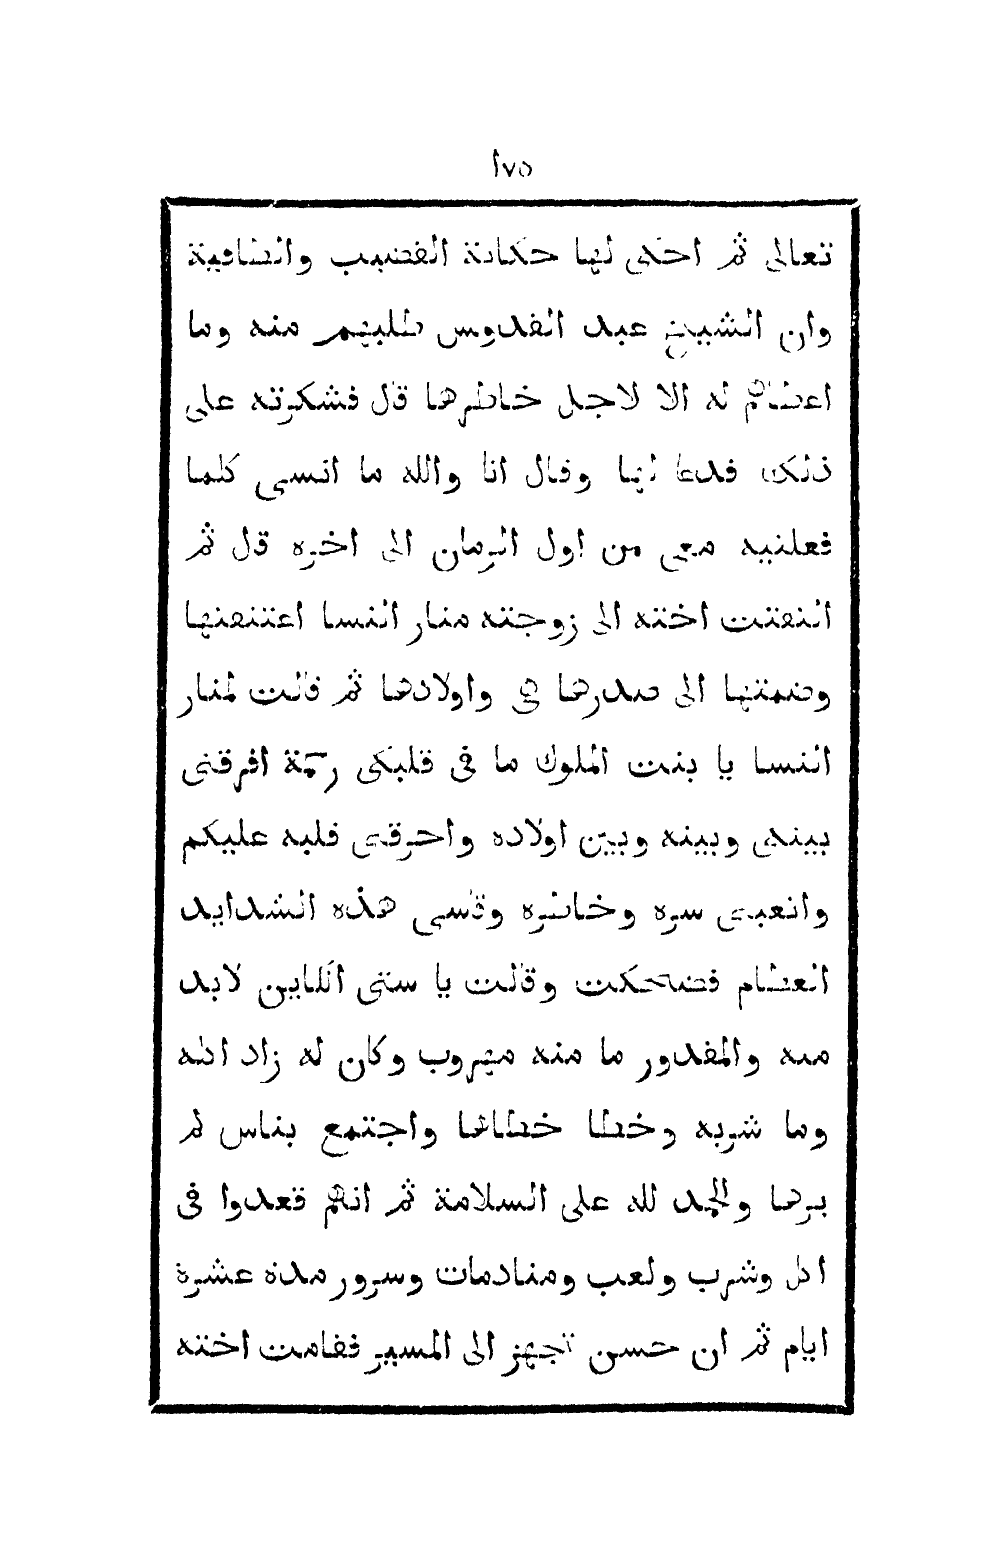 ١٧٥
تعالى ثم احكى لها حكاية القضيب والطاقية
وان الشيخ عبد القدوس طلبهم منه وما
اعطاهم له الا لاجل خاطرها قال فشكرته على
ذلك فدعا لها وقال انا والله ما انسى كلما
فعلتيه معى من اول الزمان الى اخره قال ثم
التفتت اخته الى زوجته منار النسا اعتنقتها
وضمتها الى صدرها هى واولادها ثم قالت لمنار
النسا يا بنت الملوك ما فى قلبكى رحمة افرقتى
بينكى وبينه وبين اولاده واحرقتى قلبه عليكم
واتعبتى سره وخاطره وقاسى هذه الشدايد
العظام فضحكت وقالت يا ستى اللاين لابد
منه والمقدور ما منه مهروب وكان له زاد اكله
وما شربه وخطا خطاها واجتمع بناس لم
يرها والحمد لله على السلامة ثم انهم قعدوا فى
اكل وشرب ولعب ومنادمات وسرور مدة عشرة
ايام ثم ان حسن تجهز الى المسير فقامت اخته